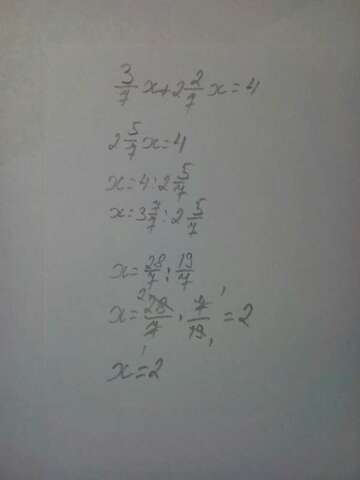 3/7 x + 2 2/7 x = 4
2 5/7 x = 4
x = 4 : 2 5/7
x = 3 7/7 : 2 5/7
x = 28/7 : 19/7
x = 28/7 · 7/19 = 2
x = 2